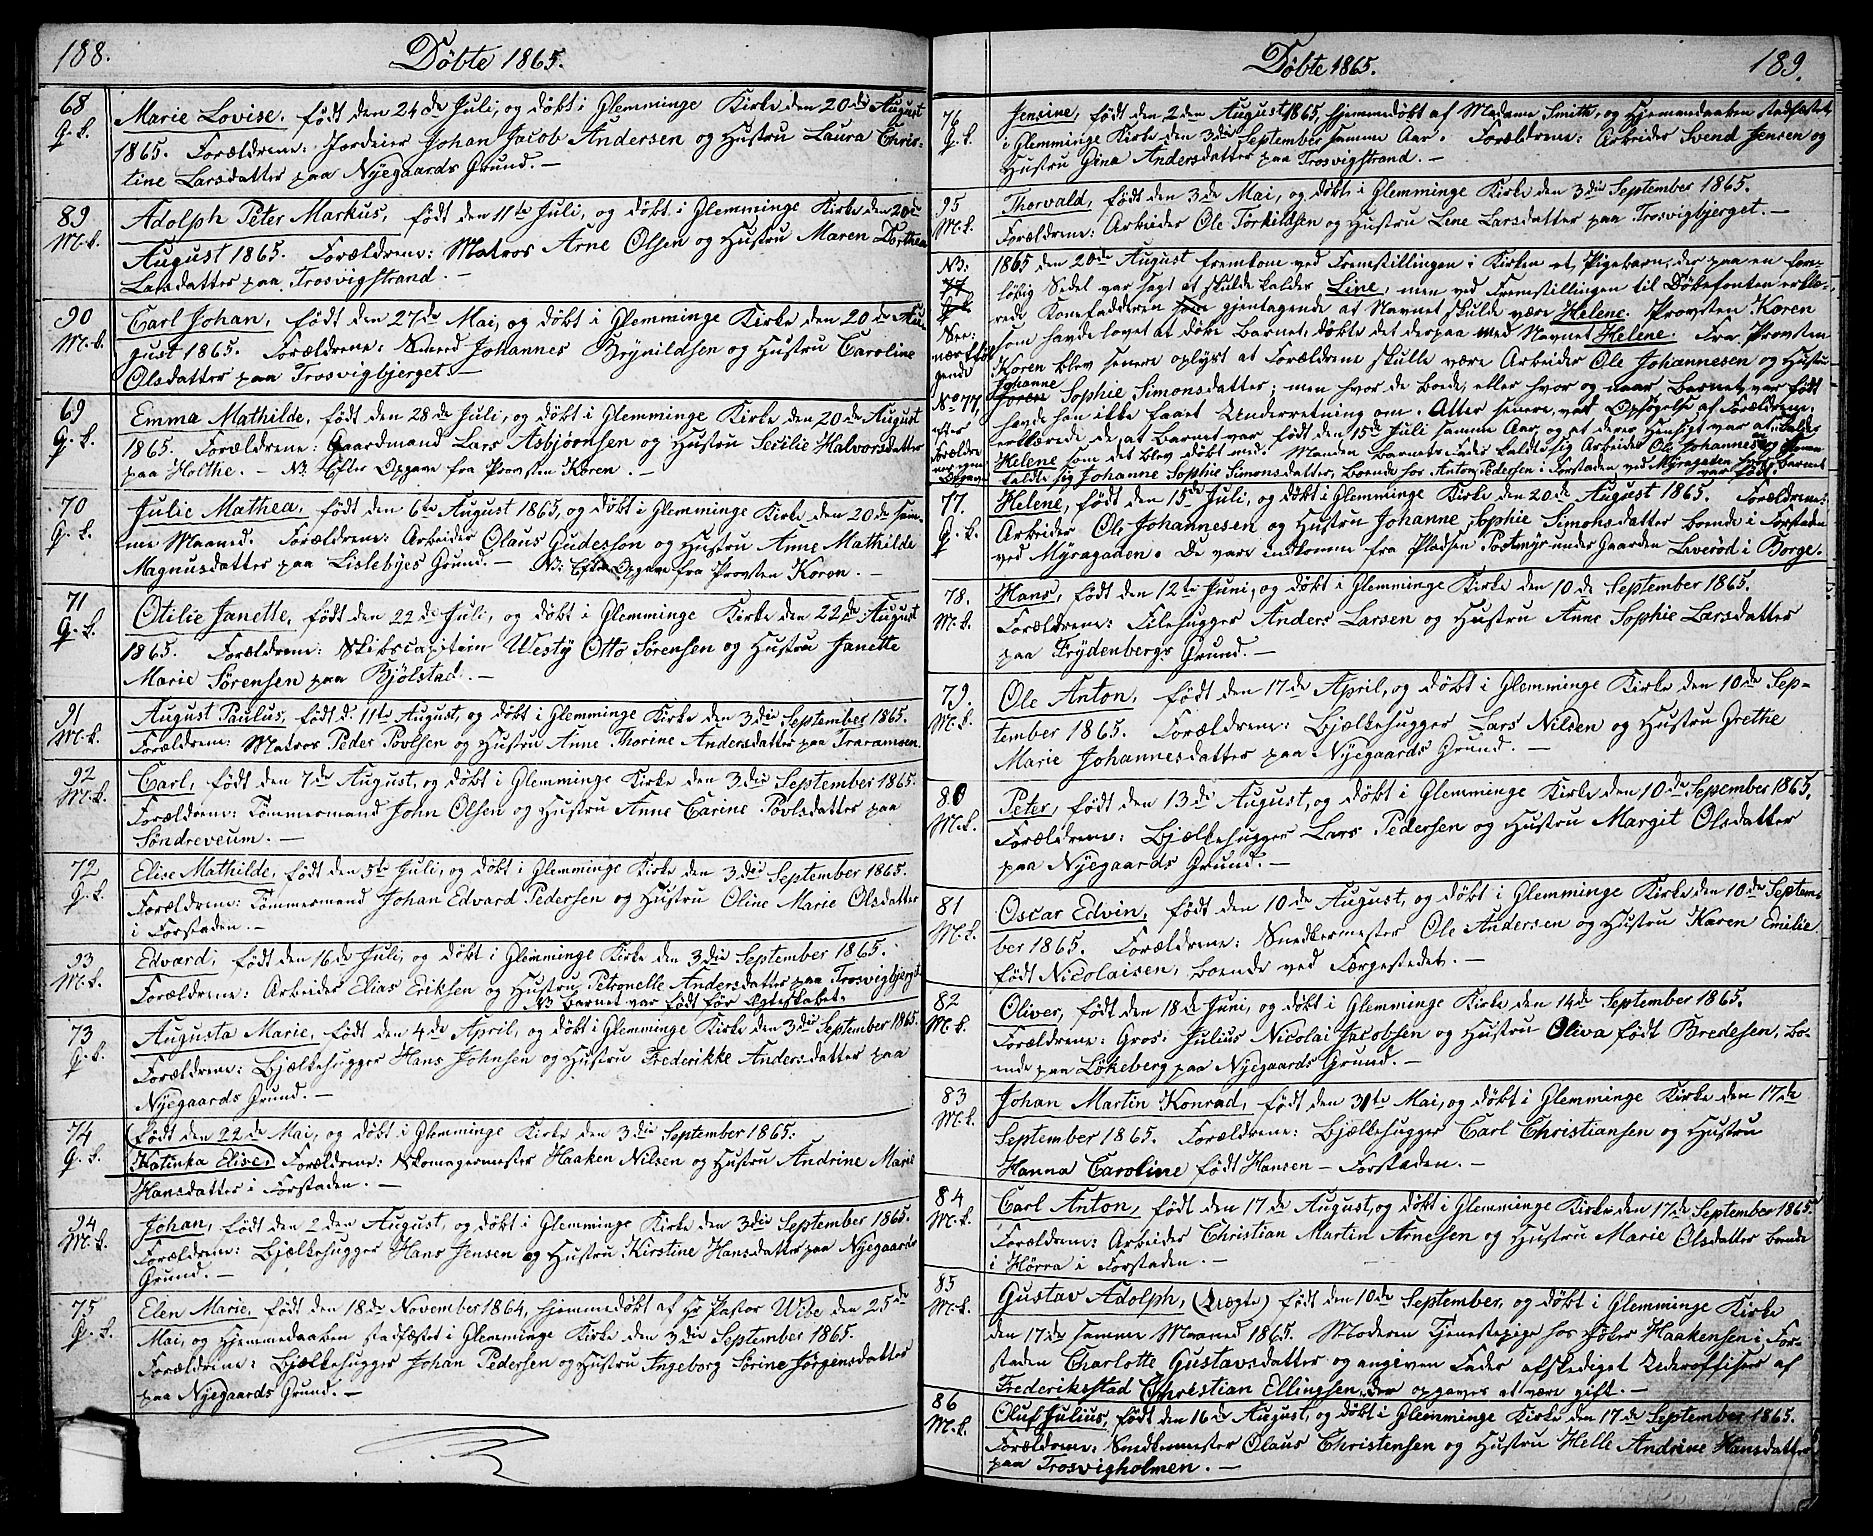 188.
Döbte 1865.
68
Q. k.
Marie Lovise, födt den 24de Juli, og döbt i Glemminge Kirke den 20de August
1865. Forældrene: Jordeier Johan Jacob Andersen og Hustru Laura Chris-
tine Larsdatter paa Nyegaards Grund. —
89
M. k.
Adolph Peter Markus, födt den 11te Juli, og döbt i Glemminge Kirke den 20de
August 1865. Forældrene: Matros Arne Olsen og Hustru Maren Dorthea
Larsdatter paa Trosvigstrand. —
90
M. k.
Carl Johan, födt den 27de Mai, og döbt i Glemminge Kirke den 20de Au-
gust 1865. Forældrene: Smed Johannes Brynildsen og Hustru Caroline
Olsdatter paa Trosvigbjerget. —
69
Q. k.
Emma Mathilde, födt den 28de Juli, og döbt i Glemminge Kirke den 20de August
1865. Forældrene: Gaardmand Lars Asbjörnsen og Hustru Secilie Halvorsdatter
paa Holthe. — NB Efter Opgave fra Provsten Koren. —
70
Q. k.
Julie Mathea, födt den 6te August 1865, og döbt i Glemminge Kirke den 20de sam-
me Maaned. Forældrene: Arbeider Olaus Gudesson og Hustru Anne Mathilde
Magnusdatter paa Lislebyes Grund. — NB: Efter Opgave fra Provsten Koren. —
71
Q. k.
Otilie Janette, födt den 22de Juli, og döbt i Glemminge Kirke den 22de August
1865. Forældrene: Skibscapitein Westy Otto Sörensen og Hustru Janette
Marie Sörensen paa Bjölstad. —
91
M. k.
August Paulus, födt d. 11te August, og döbt i Glemminge Kirke den 3die September 1865.
Forældrene: Matros Peder Povlsen og Hustru Anne Thorine Andersdatter paa Traramsen.
92
M. k.
Carl, födt den 7de August, og döbt i Glemminge Kirke den 3die September 1865.
Forældrene: Tömmermand John Olsen og Hustru Anne Carine Povlsdatter paa
Söndreveum. —
72
Q. k.
Elise Mathilde, födt den 5te Juli, og döbt i Glemminge Kirke den 3die September 1865.
Forældrene: Tömmermand Johan Edvard Pedersen og Hustru Oline Marie Olsdatter
i Forstaden. —
93
M. k.
Edvard, födt den 16de Juli, og döbt i Glemminge Kirke den 3die September 1865.
Forældrene: Arbeider Elias Eriksen og Hustru Petronelle Andersdatter paa Trosvigbjerget
NB Barnet var födt för Ægteskabet.
73
Q. k.
Augusta Marie, födt den 4de April, og döbt i Glemminge Kirke den 3die September 1865.
Forældrene: Bjælkehugger Hans Johnsen og Hustru Frederikke Andersdatter paa
Nyegaards Grund. —
74
Q. k.
(födt den 22de Mai, og döbt i Glemminge Kirke den 3die September 1865.
Katinka Elise, Forældrene: Skomagermester Haaken Nilsen, og Hustru Andrine Marie
Hansdatter i Forstaden. —
94
M. k.
Johan, födt den 2den August, og döbt i Glemminge Kirke den 3die September 1865.
Forældrene: Bjælkehugger Hans Jensen og Hustru Kirstine Hansdatter paa Nyegaards
Grund. —
75
Q. k.
Elen Marie, födt den 18de November 1864, hjemmedöbt af Hr. Pastor Wibe den 25de
Mai, og Hjemmedaaben stadfæstet i Glemminge Kirke den 3die September 1865.
Forældrene: Bjælkehugger Johan Pedersen og Hustru Ingeborg Sörine Jörgensdatter
paa Nyegaards Grund. —
Döbte 1865.
189.
76
Q. k.
Jensine, födt den 2den August 1865, hjemmedöbt af Madame Smith, og Hjemmedaaben stadfæstet
i Glemminge Kirke den 3die September samme Aar. Forældrene: Arbeider Svend Jensen og
Hustru Gina Andersdatter paa Trosvigstrand. —
95
M. k.
Thorvald, födt den 3de Mai, og döbt i Glemminge Kirke den 3die September 1865.
Forældrene: Arbeider Ole Torkildsen og Hustru Line Larsdatter paa Trosvigbjerget. —
NB:
77
Q. k.
See
nærest föl
gende
No 77,
efter
Forældre
nes egen
Opgave
1865 den 20de August fremkom ved Fremstillingen i Kirken et Pigebarn, der paa en fore-
löbig Sedel var sagt at skulde kaldes Line, men ved Fremstillingen til Döbefonten erklæ-
rede Konefadderen gjentagende at Navnet skulde være Helene. Provsten Koren
som havde lovet at döbe Barnet, döbte det derpaa med Navnet Helene. Fra Provsten
Koren blev senere oplyst at Forældrene skulle være Arbeider Ole Johannesen og Hustru
Johanne
Sophie Simonsdatter; men hvor de boede, eller hvor og naar Barnet var födt
havde han ikke faaet Underretning om. Atter senere, ved Opsögelse af Forældrene,
erklærede de, at Barnet var födt den 15de Juli samme Aar, og at deres Hensigt var at kalde
Helene som det blev döbt med. Manden Barnets Fader kaldte sig Arbeider Ole Johannesen og Konen
kaldte sig Johanne Sophie Simonsdatter, boende hos Anton Pedersen i Forstaden ved Myragaden hvor Barnet
var födt.
77.
Q. k.
Helene, födt den 15de Juli, og döbt i Glemminge Kirke den 20de August 1865. Forældrene:
Arbeider Ole Johannesen og Hustru Johanne Sophie Simonsdatter boende i Forstaden
ved Myragaden. De vare indkomne fra Pladsen Postmyr under Gaarden Laverød i Borge.
78.
M. k.
Hans, födt den 12te Juni, og döbt i Glemminge Kirke den 10de September 1865.
Forældrene: Filehugger Anders Larsen og Hustru Anne Sophie Larsdatter
paa Frydenbergs Grund. —
79.
M. k.
Ole Anton, födt den 17de April, og döbt i Glemminge Kirke den 10de Sep-
tember 1865. Forældrene: Bjælkehugger Lars Nilsen og Hustru Grethe
Marie Johannesdatter paa Nyegaards Grund. —
80
M. k.
Peter, födt den 13de August, og döbt i Glemminge Kirke den 10de September 1865.
Forældrene: Bjælkehugger Lars Pedersen og Hustru Margit Olsdatter
paa Nyegaards Grund. —
81
M. k.
Oscar Edvin, födt den 10de August, og döbt i Glemminge Kirke den 10de Septem-
ber 1865. Forældrene: Snedkermester Ole Andersen og Hustru Karen Emilie
födt Nicolaisen, boende ved Færgestedet. —
82
M. k.
Oliver, födt den 18de Juni, og döbt i Glemminge Kirke den 14de September 1865.
Forældrene: Gros. Julius Nicolai Jacobsen og Hustru Oliva födt Bredesen, bo-
ende paa Lökeberg paa Nyegaards Grund. —
83
M. k.
Johan Martin Konrad, födt den 31te Mai, og döbt i Glemminge Kirke den 17de
September 1865. Forældrene: Bjælkehugger Carl Christiansen og Hustru
Hanna Caroline födt Hansen — Forstaden. —
84
M. k.
Carl Anton, födt den 17de August, og döbt i Glemminge Kirke den 17de September 1865.
Forældrene: Arbeider Christian Martin Arnesen og Hustru Marie Olsdatter boende
i Hörra i Forstaden. —
85
M. k.
Gustav Adolph, (Uægte) födt den 10de September, og döbt i Glemminge Kirke
den 17de samme Maaned 1865. Moderen Tjenestepige hos Haakensen i For-
staden Charlotte Gustavsdatter og angiven Fader afskediget Underofficer af
Frederiksstad Christian Ellingsen, der opgaves at være gift. —
86
M. k.
Oluf Julius, födt den 16de August, og döbt i Glemminge Kirke den 17de September 1865.
Forældrene: Snedkermester Olaus Christensen og Hustru Helle Andrine Hansdatter
paa Trosvigholmen. —